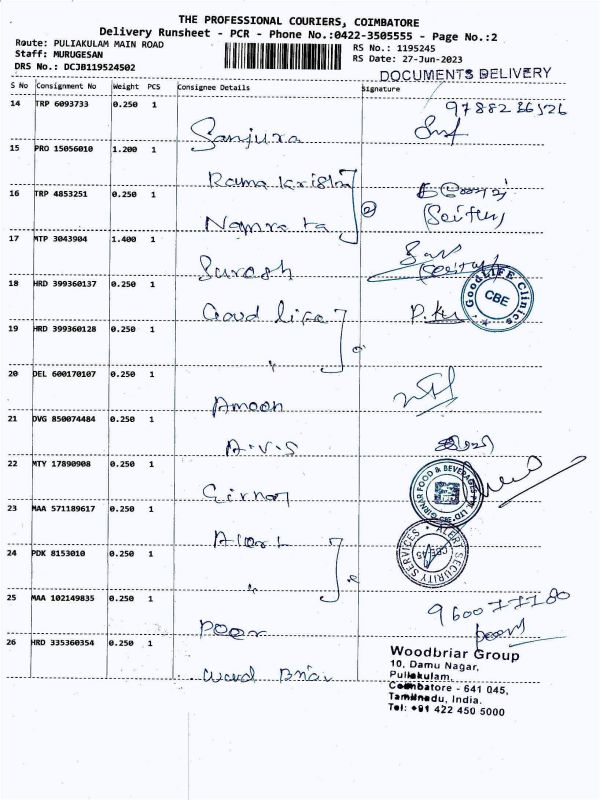 THE PROFESSIONAL COURIERS, COIMBATORE
Delivery Runsheet - PCR - Phone No.:0422-3505555 - Page No.:2
Route: PULIAKULAM MAIN ROAD
Staff: MURUGESAN
DRS No.: DCJB119524502
RS No.: 1195245
RS Date: 27-Jun-2023
DOCUMENTS DELIVERY
S No Consignment No Weight PCS Consignee Details Signature
14 TRP 6093733 0.250 1 Sanjura 9788236526
15 PRO 15056010 1.200 1 Rama Krishn
16 TRP 4853251 0.250 1 Namrata
17 MTP 3043904 1.400 1 Suresh
18 HRD 399360137 0.250 1 Good life
GoodLIFE Clinics CBE
19 HRD 399360128 0.250 1 "
20 DEL 600170107 0.250 1 Amoon
21 DVG 850074484 0.250 1 A.V.S
22 MTY 17890908 0.250 1 Girnar
GIRNAR FOOD & BEVERAGES PVT. LTD. CBE
23 MAA 571189617 0.250 1 Alert
ALERT SECURITY SERVICES CBE-45
24 PDK 8153010 0.250 1 "
25 MAA 102149835 0.250 1 Poer 9600777180
26 HRD 335360354 0.250 1 Wood Briar
Woodbriar Group
10, Damu Nagar,
Puliakulam,
Coimbatore - 641 045,
Tamilnadu, India.
Tel: +91 422 450 5000